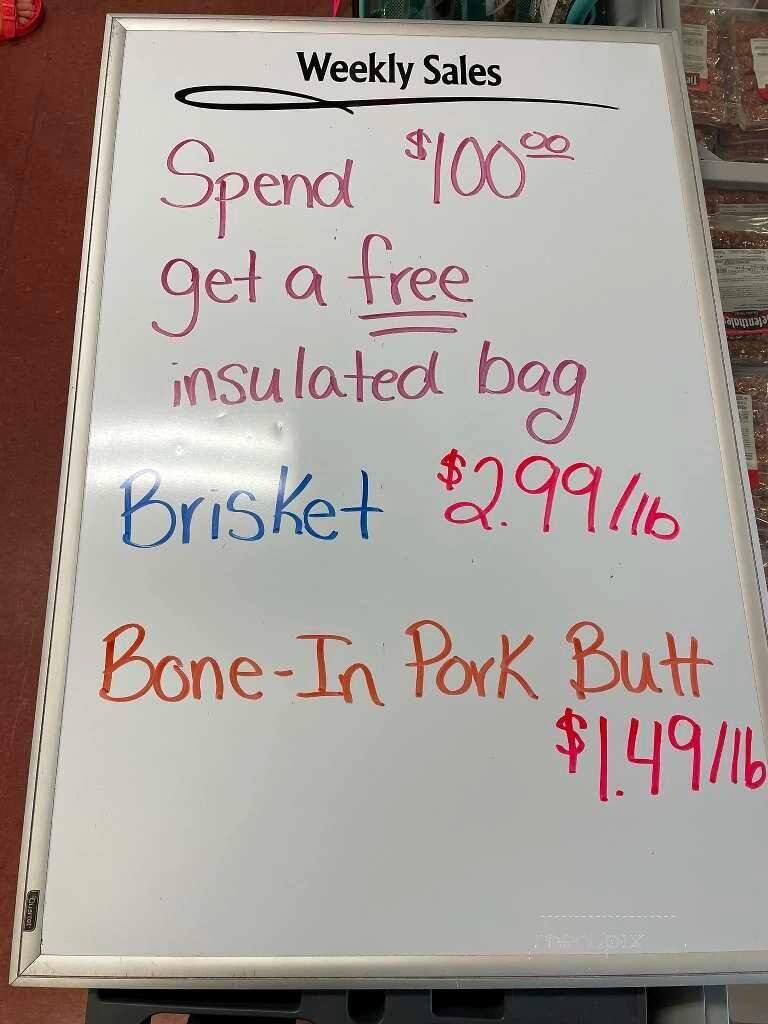 Weekly Sales
Spend $100.00
get a free
insulated bag
Brisket $2.99/lb
Bone-In Pork Butt
$1.49/lb